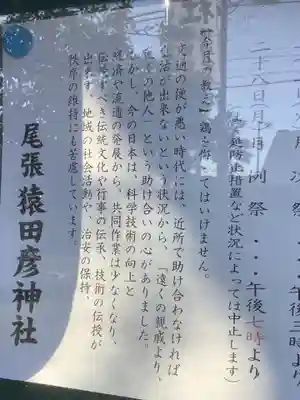 月次祭
午後三時より
二十八日 月 例祭・・・午後七時より
延防止措置など状況によっては中止します)
【今月の教え】
鶏を飼ってはいけません。
交通の便が悪い時代には、近所で助け合わなければ
生活が出来ないという状況から、「遠くの親戚より、
近くの他人」という助け合いの心がありました。
しかし、今の日本は、科学技術の向上と
経済や流通の発展から、共同作業は少なくなり、
伝承すべき伝統文化や行事の伝承、技術の伝授が
出来ず、地域の社会活動や、治安の保持、
秩序の維持にも苦慮しています。
尾張猿田彦神社